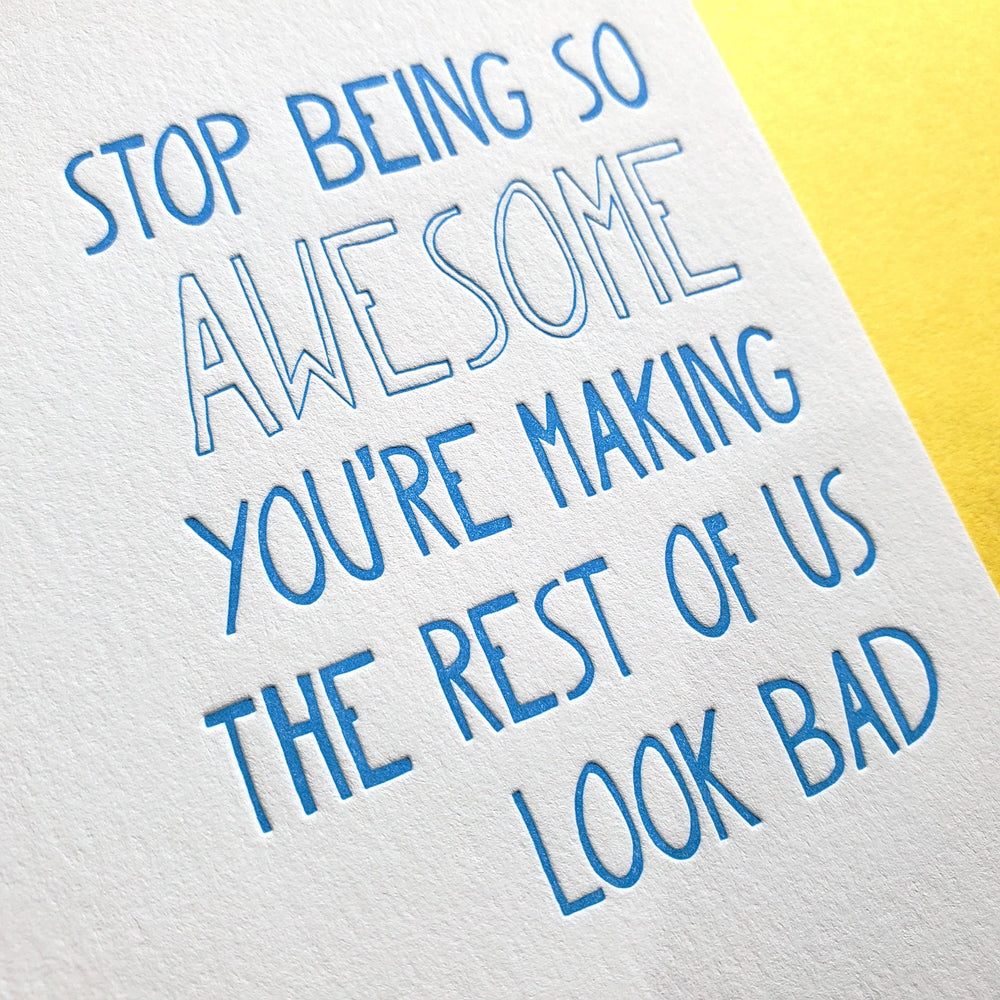 STOP BEING SO
AWESOME
YOU'RE MAKING
THE REST OF US
LOOK BAD